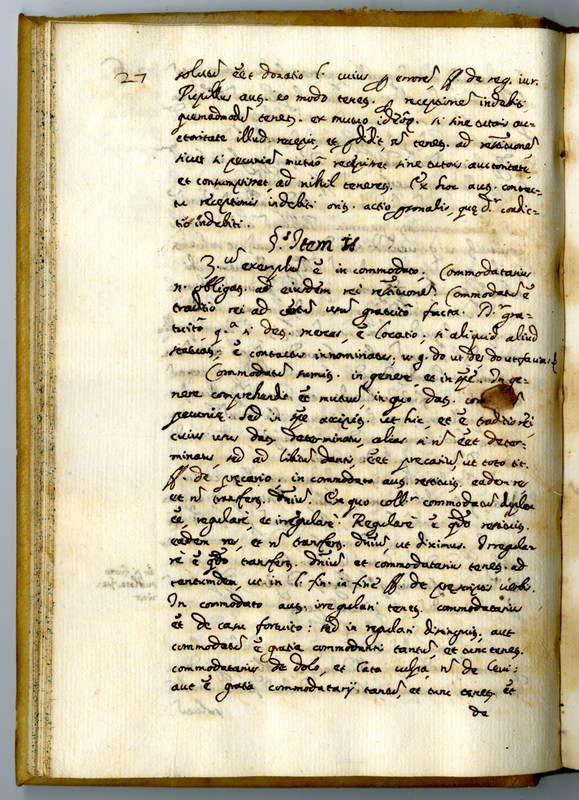 27
solutũ eẽt donatio l. cuius p errorẽ ff. de reg. iur.
Pupillus aut. eo modo tenet. p receptionẽ indebiti
quemadmodũ tenet. ex mutuo ideoq. si sine tutoris auc-
toritate illud recepit, et pdidit, nõ tenet. ad restõnem
sicut si pecuniã mutuõ recepisset sine tutoris auctoritate,
et consumpsisset ad nihil teneret. Ex hoc aut. contrac-
tu receptionis indebiti orit. actio psonalis, quę dr condic-
tio indebiti.
§.s Item Is
3.um exemplũ ẽ in commodato. Commodatarius
n. obligat. ad eiusdem rei restõnem. Commodatũ ẽ
traditio rei ad certũ usum gratuitõ facta. Dr gra-
tuitõ qa si det. merces, ẽ locatio, si aliquid aliud
ẽ contractus innominatus, u. g. do ut des do ut facias
Commodatũ sumit. in genere et in spẽ. In ge-
nere comprehendit et mutuũ in quo dat.
pecunię. Sed in spẽ accipit. ut hic, et ẽ traditio rei
cuius usus dat. determinatus, alias si nõ eẽt deter-
minatus, sed ad libitũ dantis eẽt precariũ ut toto tit.
ff. de precario. in commodato aut. restituit. eadem res
et nõ transfert. dñium. Ex quo collr commodatũ duplex
eẽ, regulare, et irregulare. Regulare ẽ qdo restituit.
eadem res, et nõ transfert. dñium, ut diximus. Irregula-
re ẽ qdo transfert. dñium, et commodatarius tenet. ad
tantumdem ut in l. fin. in fine ff. de prescriptis verb.
In commodato aut. irregulari tenet. commodatarius
et de casu fortuito: sed in regulari distinguit. aut
commodatũ ẽ gratia commodantis tantũ, et tunc tenet.
commodatarius de dolo, et lata culpa, nõ de levi:
aut ẽ gratia commodatarij tantũ, et tunc tenet. et
de